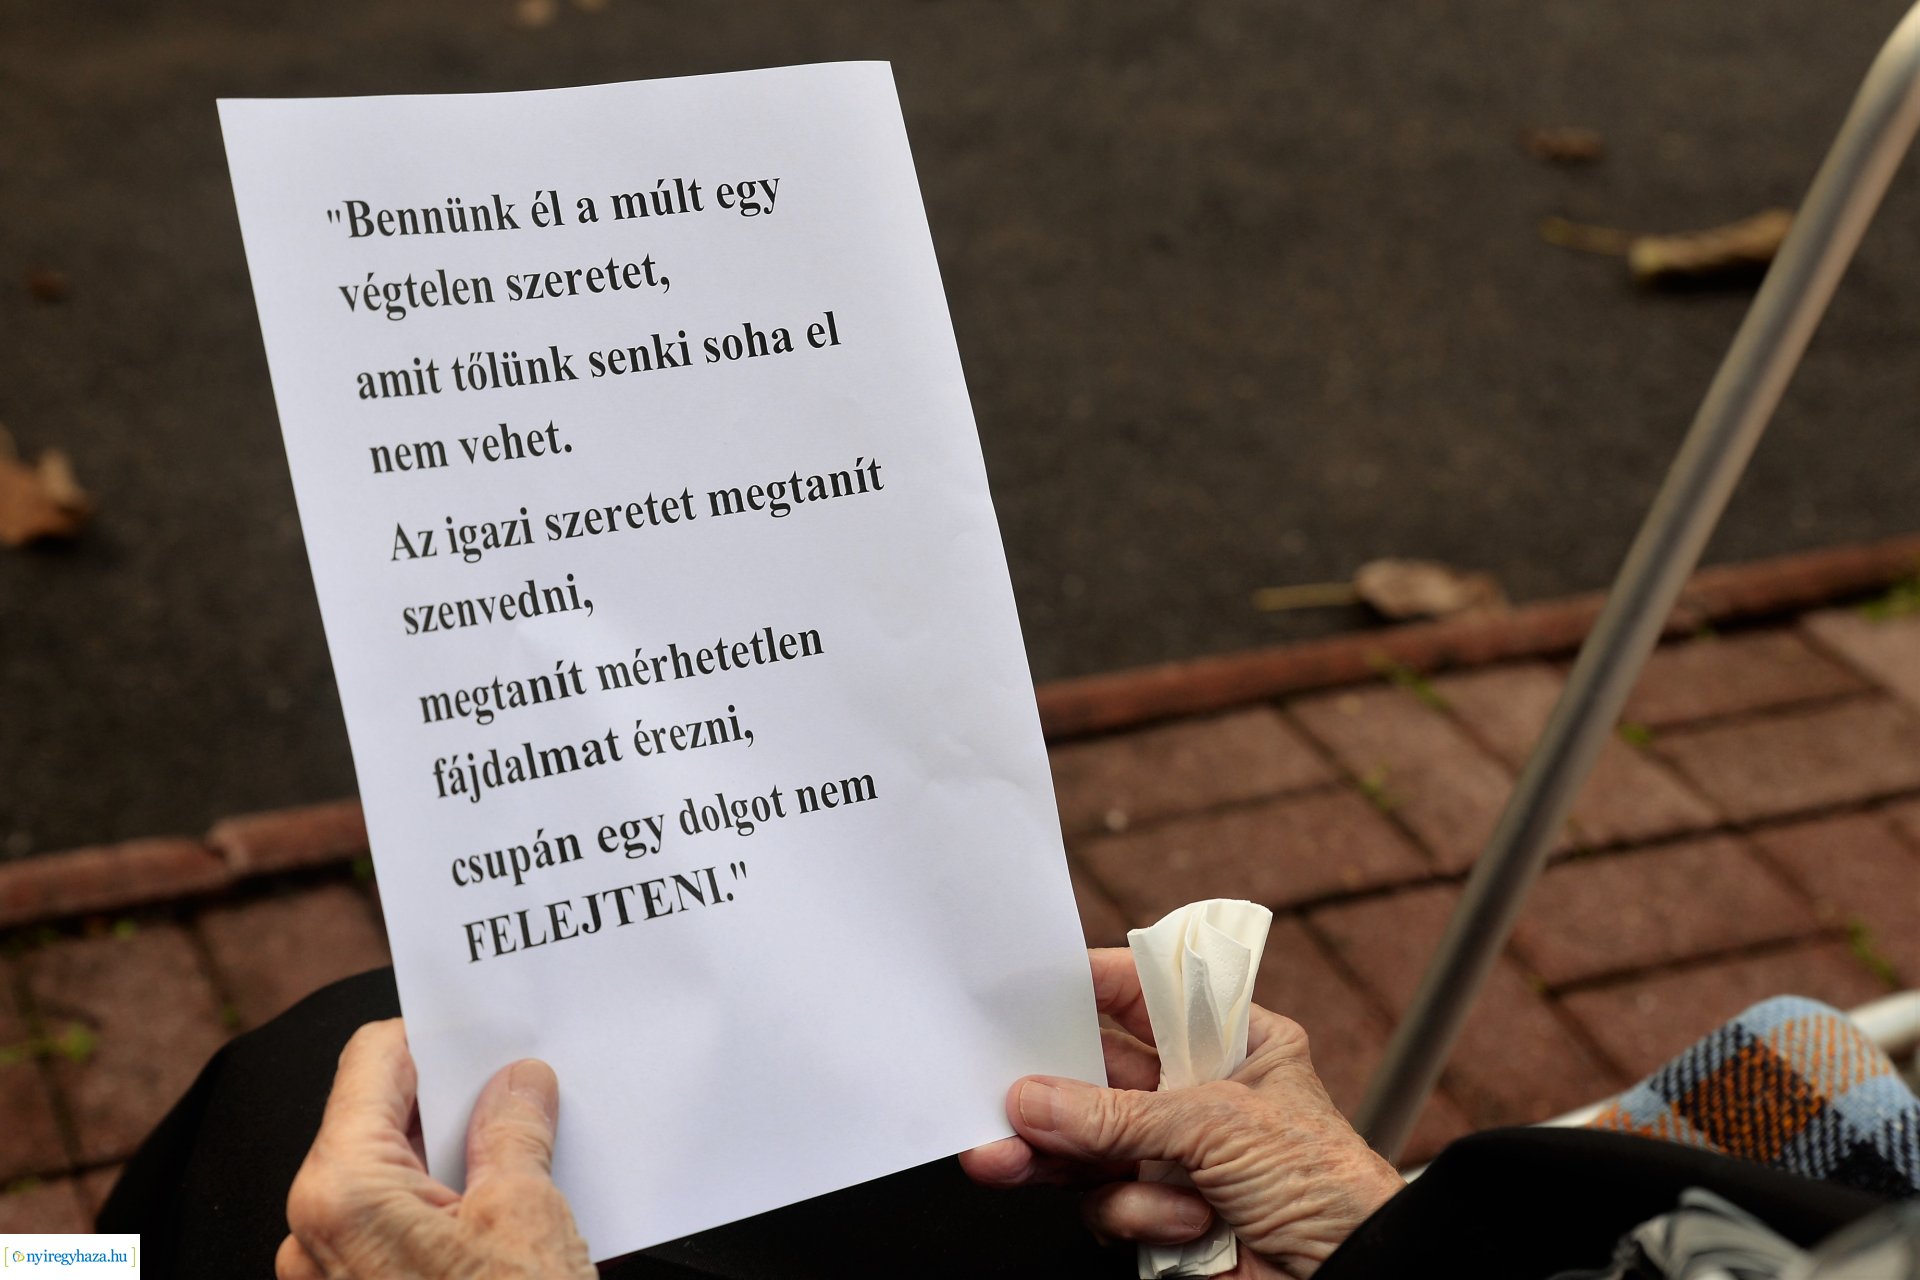 "Bennünk él a múlt egy
végtelen szeretet,
amit tőlünk senki soha el
nem vehet.
Az igazi szeretet megtanít
szenvedni,
megtanít mérhetetlen
fájdalmat érezni,
csupán egy dolgot nem
FELEJTENI."
nyiregyhaza.hu